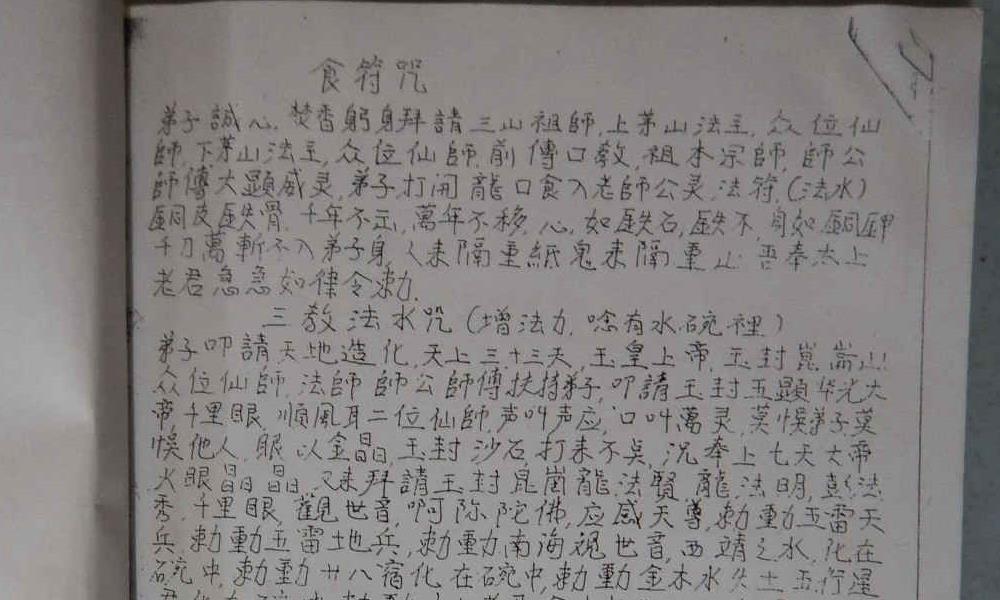 食符咒
弟子誠心.焚香躬身拜請三山祖師,上茅山法主,众位仙
師,下茅山法主,众位仙師,前傳口教,祖本宗師,師公
師傅大顯威灵,弟子打開龍口食入老師公灵,法符,(法水)
銅皮鉄骨.千年不 萬年不移,心,如鉄石,鉄不,身如,銅鉀
千刀萬斬不入弟子身,人来隔重紙鬼来隔重山 吾奉太上
老君急急如律令勅.
三教法水咒(增法力.唸有水碗裡)
弟子叩請天地造化,天上三十三天,玉皇上帝,玉封崑崙山
众位仙師,法師師公師傅扶持弟子,叩請玉封五顯华光大
帝,千里眼,順風耳二位仙師,声叫声应,口叫萬灵,莫悞弟子莫
悞他人,眼以金晶,玉封沙石打来不 况奉上七天大帝
火眼晶晶,又来拜請玉封崑崗龍,法賢,龍,法明,彭法
秀,千里眼,觀世音,啊弥陀佛,应感天尊,勅動五雷天
兵,勅動五雷地兵,勅動南海观世音,西 之水,化在
碗中,勅動廿八宿化在碗中,勅動金木水火土五行星